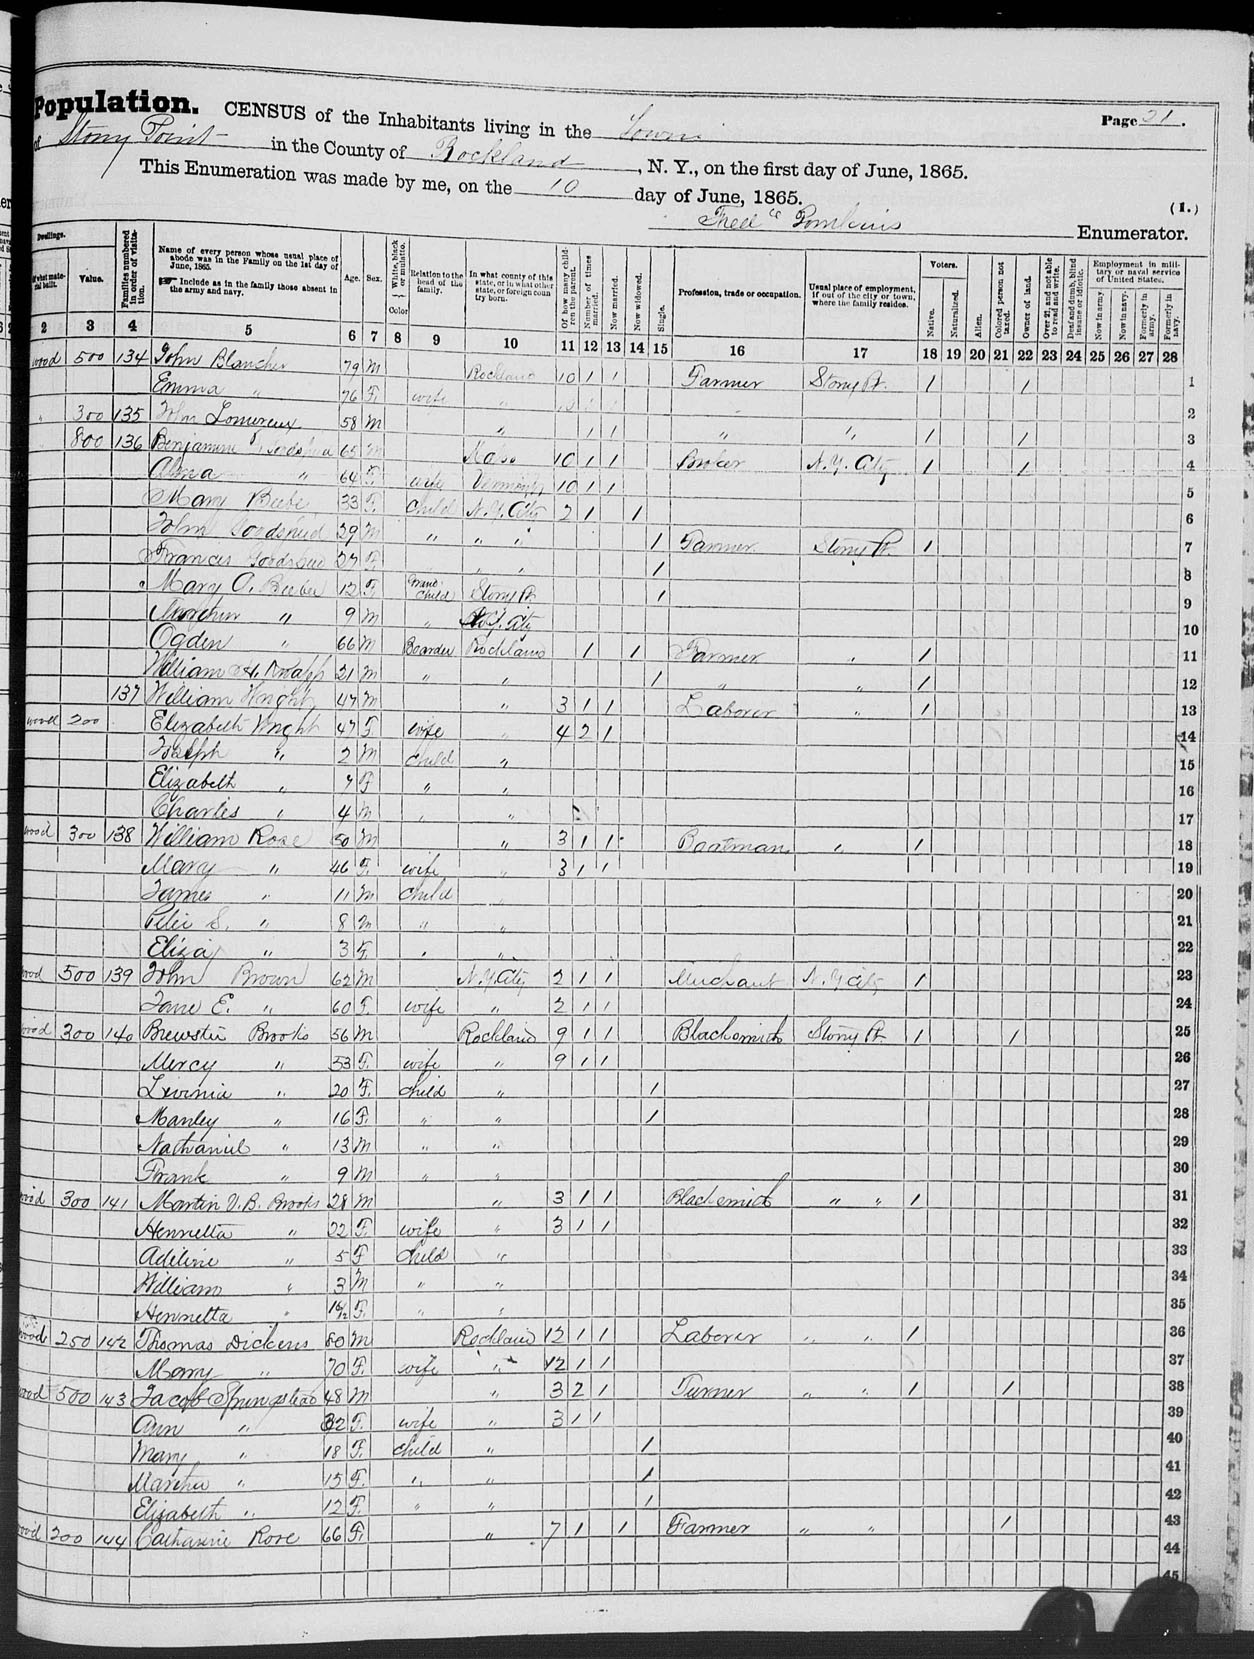 Population. CENSUS of the Inhabitants living in the Town Page 21.
of Stony Point in the County of Rockland, N. Y., on the first day of June, 1865.
This Enumeration was made by me, on the 10 day of June, 1865.
(1.)
Tomkins Enumerator.
Value. Families numbered in order of visitation. Name of every person whose usual place of abode was in the Family on the 1st day of June, 1865. Include as in the family those absent in the army and navy. Age. Sex. White, black or mulatto. Color Relation to the head of the family. In what county of this state, or in what other state, or foreign country born. Of how many children the parent. Number of times married. Now married. Now widowed. Single. Profession, trade or occupation. Usual place of employment, if out of the city or town, where the family resides. Voters. Native. Naturalized. Alien. Colored person not taxed. Owner of land. Over 21, and not able to read and write. Deaf and dumb, blind insane or idiotic. Employment in military or naval service of United States. Now in army. Now in navy. Formerly in army. Formerly in navy.
2 3 4 5 6 7 8 9 10 11 12 13 14 15 16 17 18 19 20 21 22 23 24 25 26 27 28
wood 500 134 John Blancher 79 M Rockland 10 1 1 Farmer Stony Pt. 1 1 1
Emma " 76 F. wife " 2
" 300 135 John 58 M " 1 1 " " 1 1 3
800 136 Benjamin 65 M Mass 10 1 1 Broker N.Y. City 1 1 4
Alma " 64 F. wife 10 1 1 5
Mary Beebe 33 F. child N.Y. City 2 1 1 6
John 29 M " " " 1 Farmer Stony Pt. 1 7
Francis 27 F " " 1 8
Mary O. Beebe 12 F. Grand child Stony Pt. 1 9
" 9 M " N.Y. City 10
Ogden " 66 M Boarder Rockland 1 1 Farmer " 1 11
William H. Knapp 21 M " " 1 " " 1 12
137 William Wright 47 M " 3 1 1 Laborer " 1 13
wood 200 Elizabeth Wright 47 F. wife " 4 2 1 14
Joseph " 2 M child " 15
Elizabeth " 7 F " " 16
Charles " 4 M " " 17
wood 300 138 William Rose 50 M " 3 1 1 Boatman " 1 18
Mary " 46 F. wife " 3 1 1 19
James " 11 M child " 20
Peter S. " 8 M " " 21
Eliza " 3 F. " " 22
wood 500 139 John Brown 62 M N.Y. City 2 1 1 Merchant N.Y. City 1 23
Jane E. " 60 F. wife " 2 1 1 24
wood 300 140 Brewster Brooks 56 M Rockland 9 1 1 Blacksmith Stony Pt. 1 1 25
Mercy " 53 F. wife " 9 1 1 26
Levinia " 20 F. child " 1 27
Manley " 16 F. " " 1 28
Nathaniel " 13 M " " 29
Frank " 9 M " " 30
wood 300 141 Martin V. B. Brooks 28 M " 3 1 1 Blacksmith " " 1 31
Henrietta " 22 F. wife " 3 1 1 32
Adeline " 5 F child " 33
William " 3 M " " 34
Henrietta " 10/12 F. " " 35
wood 250 142 Thomas Dickens 80 M Rockland 12 1 1 Laborer " " 1 36
Mary " 70 F. wife " 12 1 1 37
wood 500 143 Jacob Springstead 48 M " 3 2 1 Turner " " 1 1 38
Ann " 32 F. wife " 3 1 1 39
Mary " 18 F. child " 1 40
Martha " 15 F. " " 1 41
Elizabeth " 12 F. " " 1 42
wood 200 144 Catharine Rose 66 F. " 7 1 1 Farmer " " 1 43
44
45